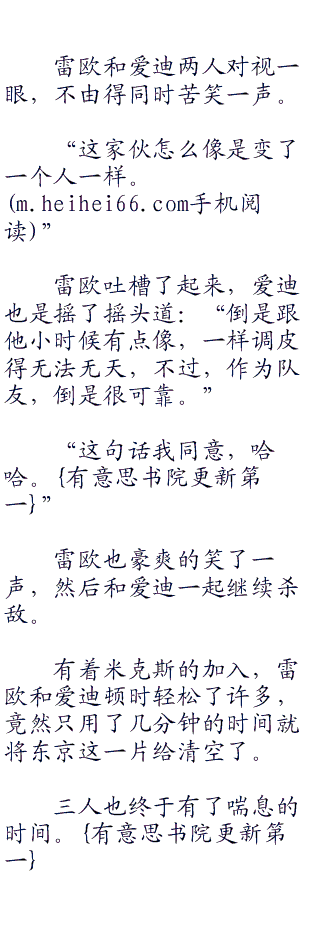 雷欧和爱迪两人对视一
眼，不由得同时苦笑一声。
“这家伙怎么像是变了
一个人一样。
(m.heihei66.com手机阅
读)”
雷欧吐槽了起来，爱迪
也是摇了摇头道：“倒是跟
他小时候有点像，一样调皮
得无法无天，不过，作为队
友，倒是很可靠。”
“这句话我同意，哈
哈。{有意思书院更新第
一}”
雷欧也豪爽的笑了一
声，然后和爱迪一起继续杀
敌。
有着米克斯的加入，雷
欧和爱迪顿时轻松了许多，
竟然只用了几分钟的时间就
将东京这一片给清空了。
三人也终于有了喘息的
时间。{有意思书院更新第
一}